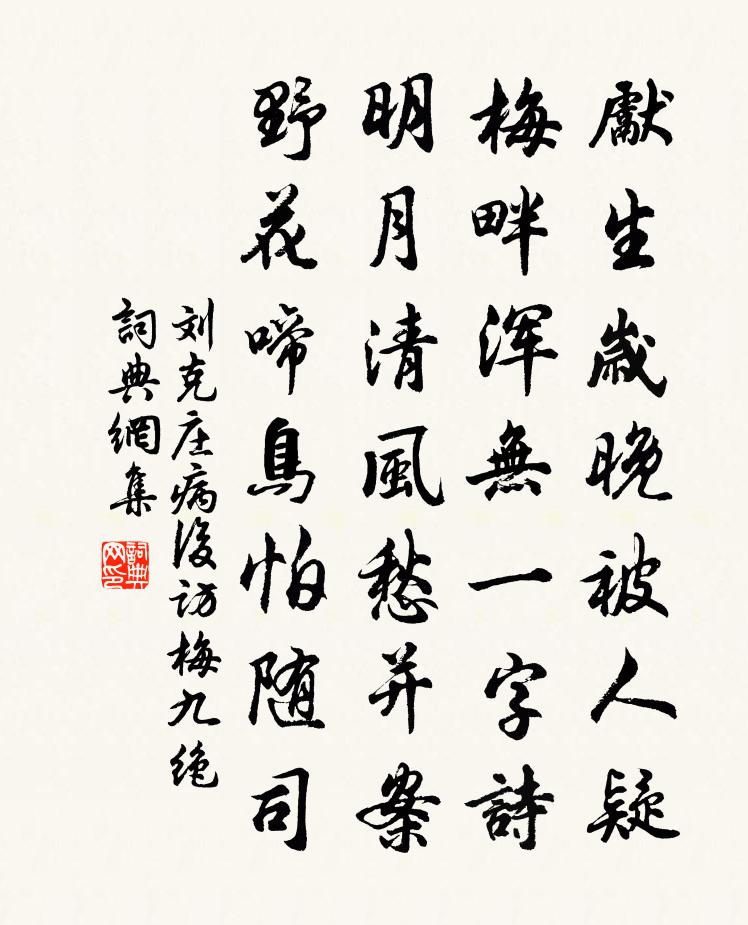 獻生歲晚被人疑
梅畔浑無一字詩
明月清風愁并案
野花啼鳥怕随司
刘克庄病後访梅九绝
詞典網集
詞典网印